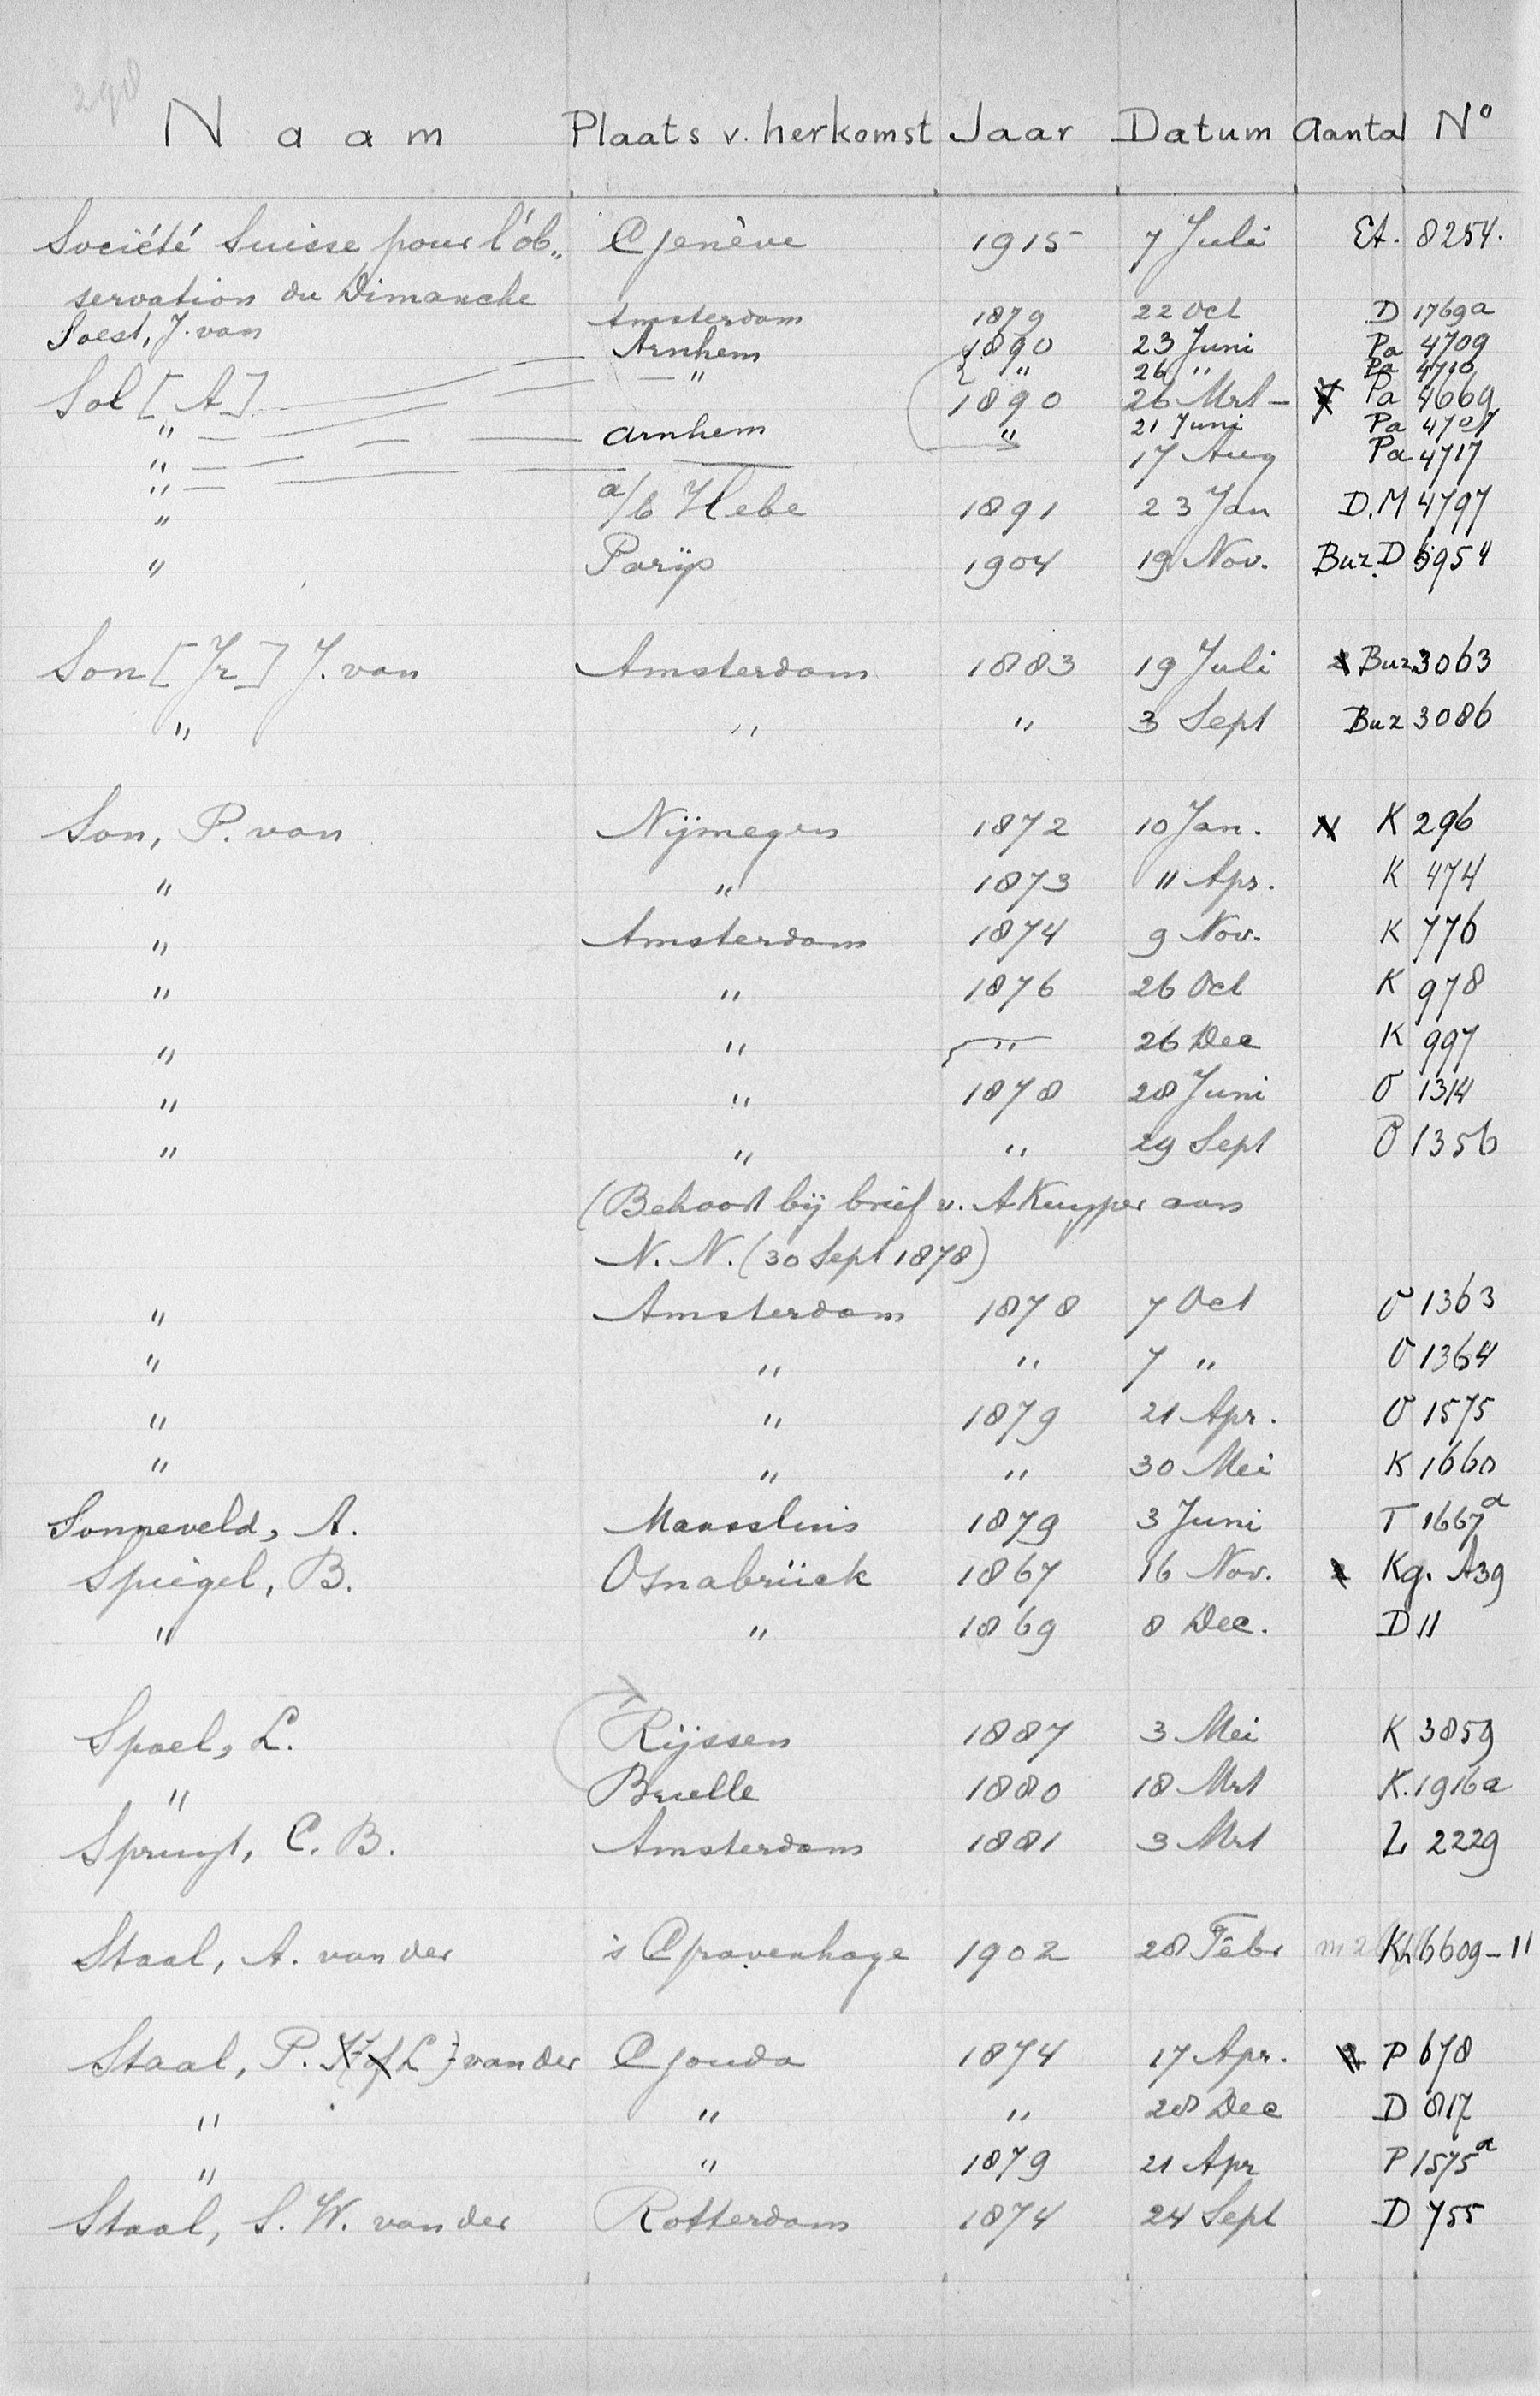 298
Naam Plaats v. herkomst Jaar Datum Aantal No
Société Suisse pour l'ob„ Genève 1915 7 Juli Et. 8254.
servation du Dimanche
Soest, J. van Amsterdam 1879 22 Oct D 1769a
Arnhem 1890 23 Juni Pa 4709
" " 26 " Pa 4710
Sol [A] 1890 26 Mrt - Pa 4669
" Arnhem " 21 Juni Pa 4707
" 17 Aug Pa 4717
"
" a/b Hebe 1891 23 Jan D.M 4797
" Parijs 1904 19 Nov. Buz. D 6954
Son [Jr] J. van Amsterdam 1883 19 Juli Buz 3063
" " " 3 Sept Buz 3086
Son, P. van Nijmegen 1872 10 Jan. K 296
" " 1873 11 Apr. K 474
" Amsterdam 1874 9 Nov. K 776
" " 1876 26 Oct K 978
" " " 26 Dec K 997
" " 1878 28 Juni O 1314
" " " 29 Sept O 1356
(Behoort bij brief v. A Kuyper aan
N. N. (30 Sept 1878)
" Amsterdam 1878 7 Oct O 1363
" " " 7 " O 1364
" " 1879 21 Apr. O 1575
" " " 30 Mei K 1660
Sonneveld, A. Maassluis 1879 3 Juni T 1667a
Spiegel, B. Osnabrück 1867 16 Nov. Kg. A39
" " 1869 8 Dec. D 11
Spoel, L. Rijssen 1887 3 Mei K 3859
" Brielle 1880 18 Mrt K. 1916a
Spruyt, C. B. Amsterdam 1881 3 Mrt L 2229
Staal, A. van der 's Gravenhage 1902 28 Febr Kh 6609-11
Staal, P. K [of L] van der Gouda 1874 17 Apr. P 678
" " " 28 Dec D 817
" " 1879 21 Apr P 1575a
Staal, S. W. van der Rotterdam 1874 24 Sept D 755